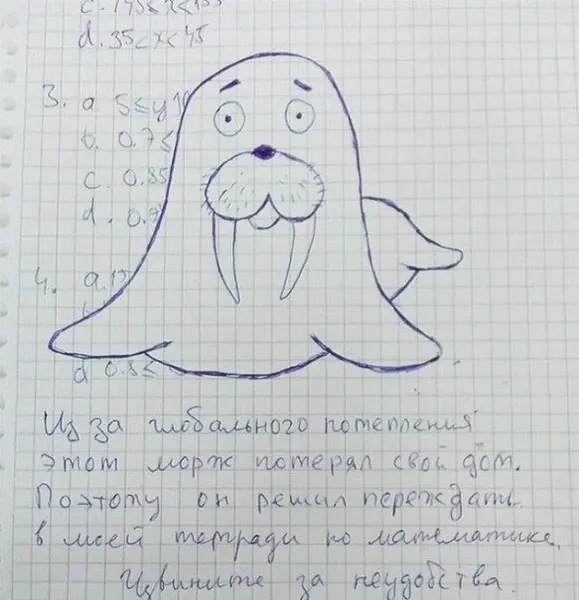 c. 145≤x≤155
d. 35<x<45
3. a. 5≤y
b. 0.7≤
c. 0.85
d. 0.7
4. a.
d 0.8≤
Из за глобального потепления
этот морж потерял свой дом.
Поэтому он решил переждать
в моей тетради по математике.
Извините за неудобства.